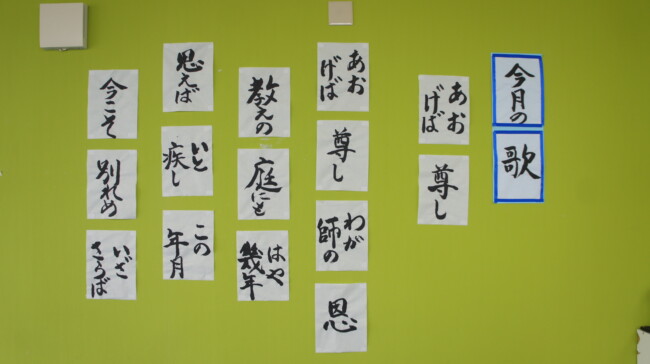 今月の
歌
あおげば
尊し
あおげば
尊し
わが師の
恩
教えの
庭にも
はや幾年
思えば
いと疾し
この年月
今こそ
別れめ
いざさらば